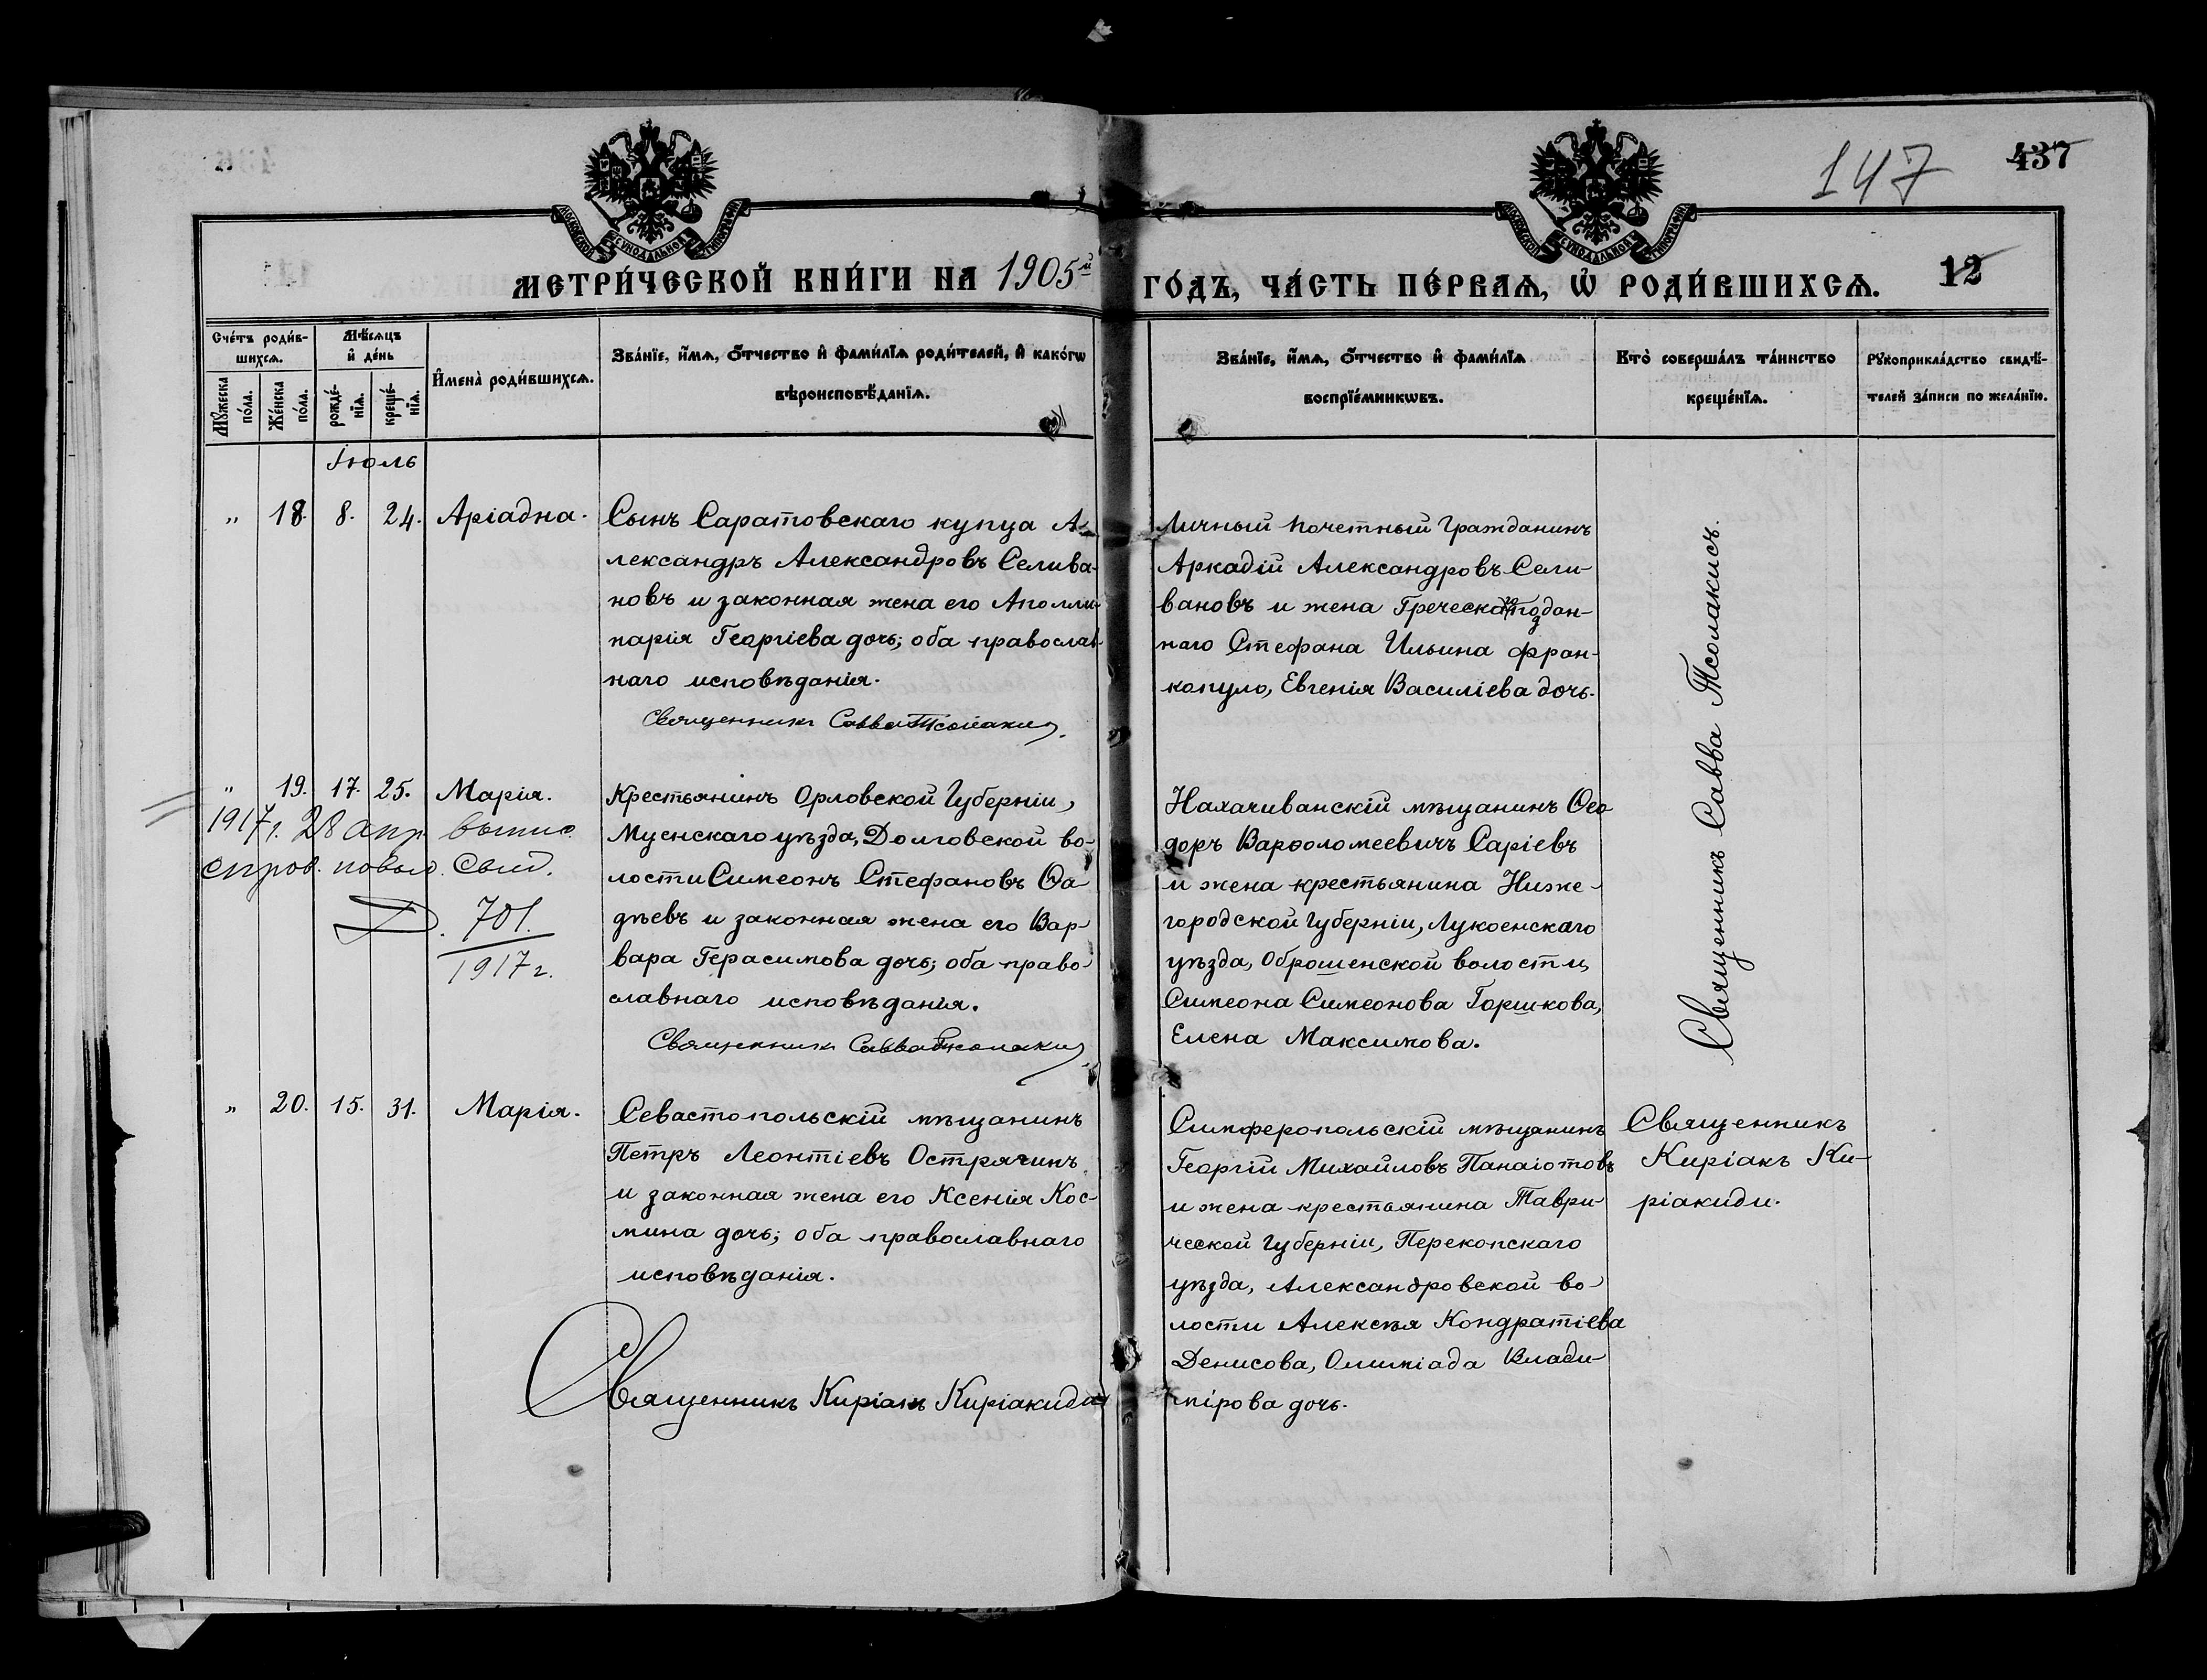 147
437
МОСКОВСКОЙ СѴНОДАЛЬНОЙ ТИПОГРАФІИ
МОСКОВСКОЙ СѴНОДАЛЬНОЙ ТИПОГРАФІИ
МЕТРИ́ЧЕСКОЙ КНИ́ГИ НА 1905й ГО́ДЪ, ЧА́СТЬ ПЕ́РВАѦ, Ѡ҆ РОДИ́ВШИХСѦ.
12
Сче́тъ роди́в-
шихсѧ.
Мꙋ́жеска по́ла.
Же́нска по́ла.
Мѣ́сѧцъ и҆ де́нь
рожде́-
нїѧ.
креще́-
нїѧ.
И҆мена̀ роди́вшихсѧ.
Зва́нїе, и҆́мѧ, ѻ҆́тчество и҆ фами́лїѧ роди́телей, и҆ како́гѡ
вѣроисповѣ́данїѧ.
Зва́нїе, и҆́мѧ, ѻ҆́тчество и҆ фами́лїѧ
воспрїе́мникѡвъ.
Кто̀ соверша́лъ та́инство
креще́нїѧ.
Рꙋкоприкла́дство свидѣ́-
телей за́писи по жела́нїю.
Іюль
" 18. 8. 24. Аріадна.
Сынъ Саратовскаго купца А-
лександръ Александровъ Селива-
новъ и законная жена его Аполли-
нарія Георгіева дочь; оба православ-
наго исповѣданія.
Священникъ Савва Тсолакисъ.
Личный почетный гражданинъ
Аркадій Александровъ Сели-
вановъ и жена Греческаго поддан-
наго Стефана Ильина Фран-
копуло, Евгенія Василіева дочь.
Священникъ Савва Тсолакисъ.
" 19. 17. 25. Марія.
1917 г. 28 апр. выпис.
спров.
701.
1917 г.
Крестьянинъ Орловской Губерніи,
Мценскаго уѣзда, Долговской во-
лости Симеонъ Стефановъ Ѳа-
дѣевъ и законная жена его Вар-
вара Герасимова дочь; оба право-
славнаго исповѣданія.
Священникъ Савва Тсолакисъ
Нахачиванскій мѣщанинъ Ѳео-
доръ Варѳоломеевичъ Саріевъ
и жена крестьянина Ниже-
городской Губерніи, Лукоенскаго
уѣзда, Оброшенской волости,
Симеона Симеонова Горшкова,
Елена Максимова.
" 20. 15. 31. Марія.
Севастопольскій мѣщанинъ
Петръ Леонтіевъ Острячинъ
и законная жена его Ксенія Кос-
мина дочь; оба православнаго
исповѣданія.
Священникъ Киріакъ Киріакиди
Симферопольскій мѣщанинъ
Георгій Михайловъ Панаіотовъ
и жена крестьянина Таври-
ческой Губерніи, Перекопскаго
уѣзда, Александровской во-
лости Алексѣя Кондратіева
Денисова, Олимпіада Влади-
мірова дочь.
Священникъ
Киріакъ Ки-
ріакиди.